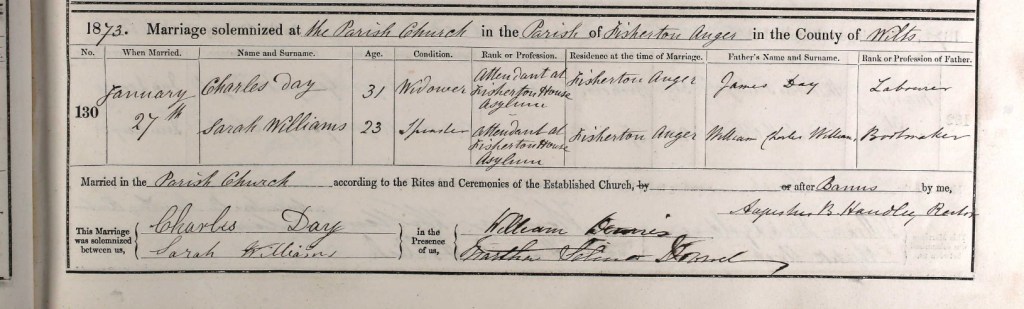 1873. Marriage solemnized at the Parish Church in the Parish of Fisherton Anger in the County of Wilts
No. When Married. Name and Surname. Age. Condition. Rank or Profession. Residence at the time of Marriage. Father's Name and Surname. Rank or Profession of Father.
130 January 27th Charles Day 31 Widower Attendant at Fisherton House Asylum Fisherton Anger James Day Labourer
Sarah Williams 23 Spinster Attendant at Fisherton House Asylum Fisherton Anger William Charles Williams Bootmaker
Married in the Parish Church according to the Rites and Ceremonies of the Established Church, by or after Banns by me,
Augustus B Handley Rector
This Marriage was solemnized between us, Charles Day in the Presence of us, William Dennis
Sarah Williams Martha Selina